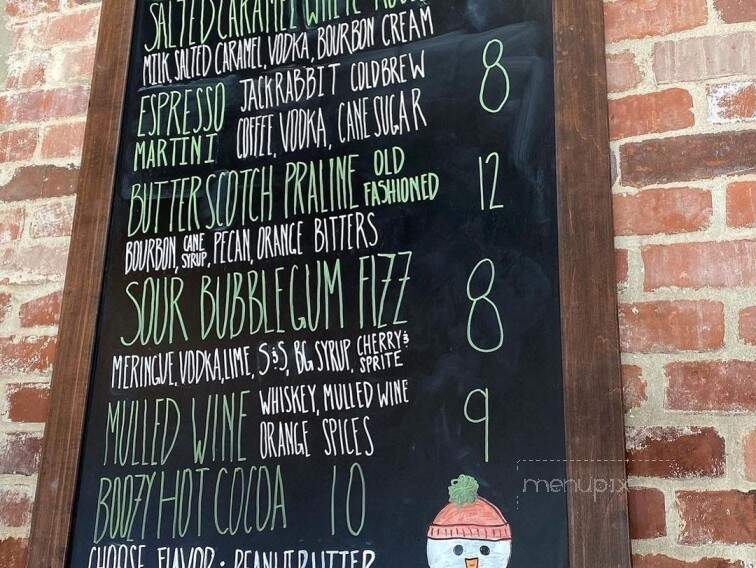 SALTED CARAMEL WHITE
MILK, SALTED CARAMEL, VODKA, BOURBON CREAM
ESPRESSO MARTINI JACKRABBIT COLDBREW 8
COFFEE, VODKA, CANE SUGAR
BUTTERSCOTCH PRALINE OLD FASHIONED 12
BOURBON, CANE SYRUP, PECAN, ORANGE BITTERS
SOUR BUBBLEGUM FIZZ 8
MERINGUE, VODKA, LIME, S&S, BG SYRUP, CHERRY & SPRITE
MULLED WINE WHISKEY, MULLED WINE 9
ORANGE SPICES
BOOZY HOT COCOA 10
CHOOSE FLAVOR: PEANUTBUTTER
menupix